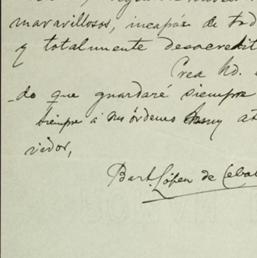 maravillosos, incapáz de tod
y totalmente desacredit
Crea Vd.
do que guardaré siempre
siempre á sus órdenes muy at
vidor,
Bart. López de Ceba